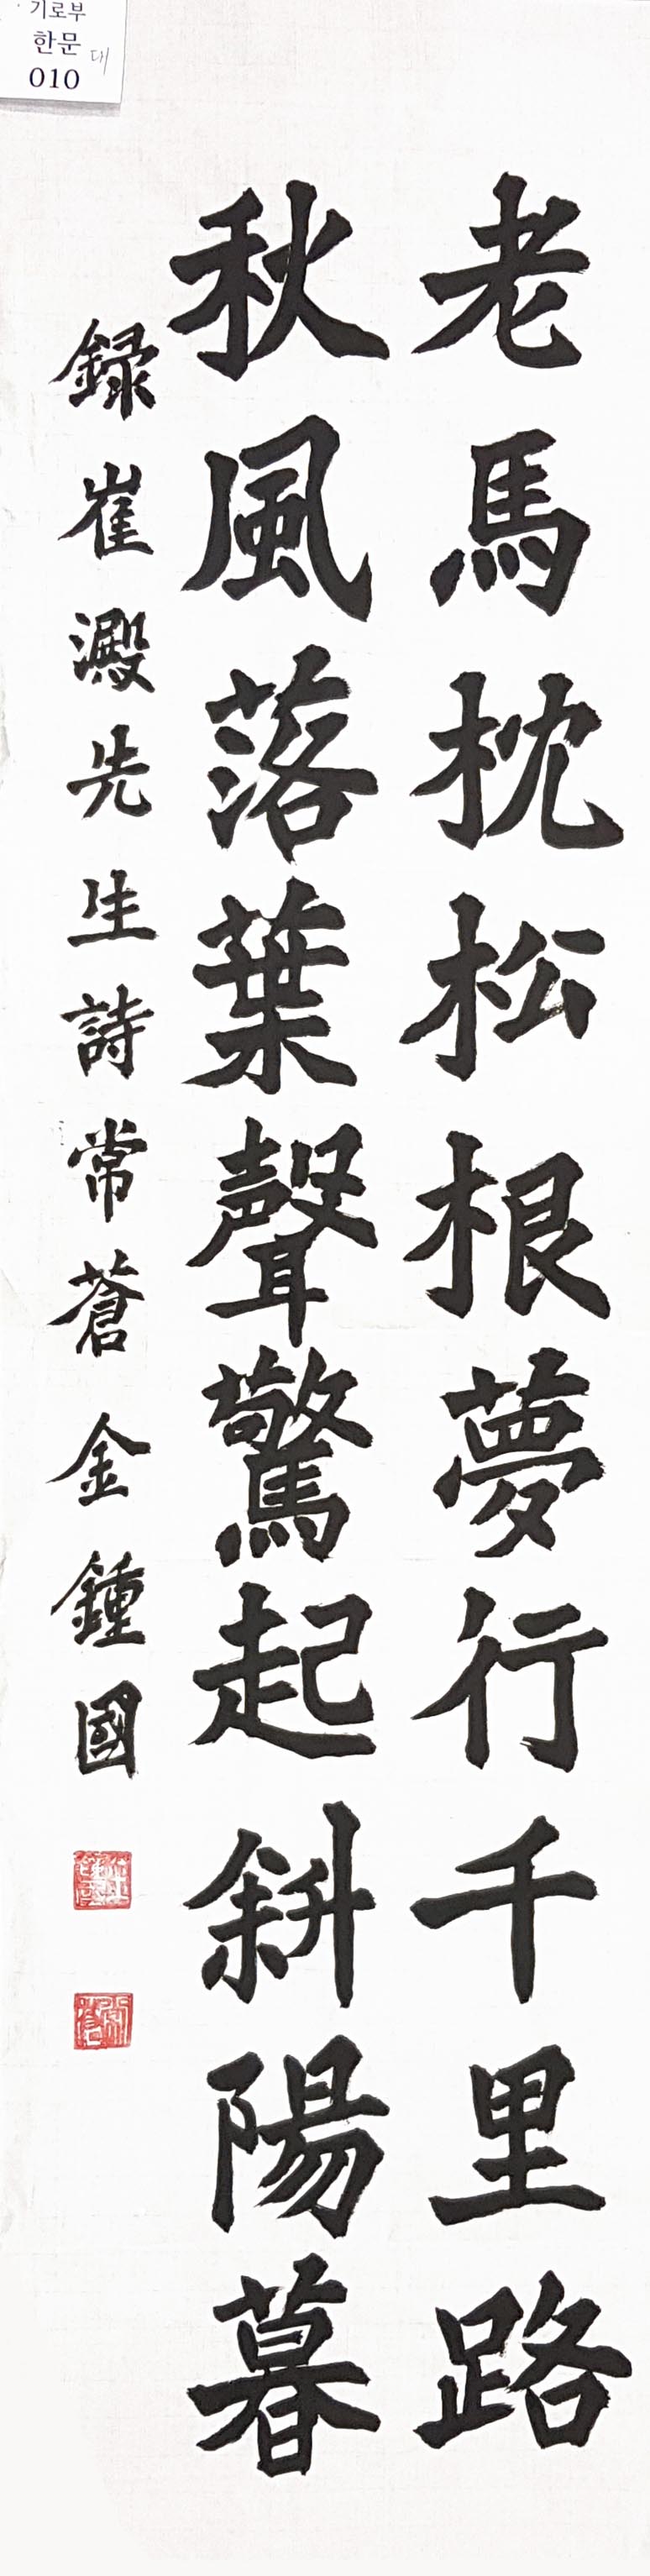 기로부
한문 대
010
老馬枕松根夢行千里路
秋風落葉聲驚起斜陽暮
錄崔澱先生詩常蒼金鍾國